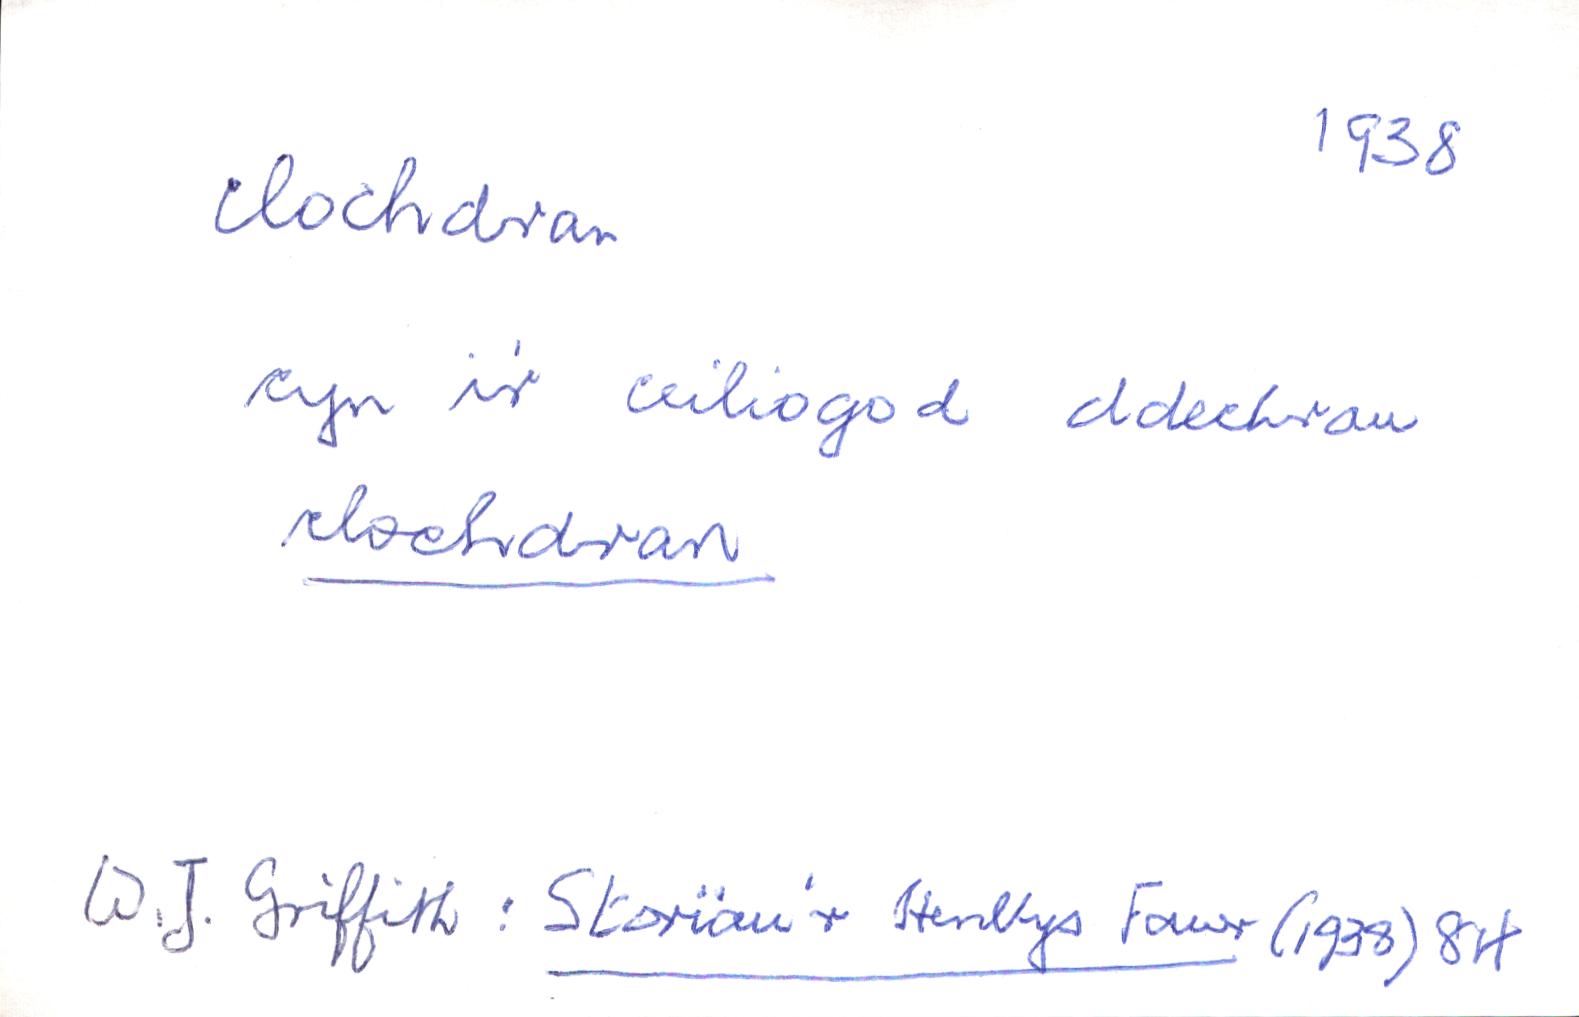 1938
clochdran
cyn i'r ceiliogod ddechrau
clochdran
W.J. Griffith : Storïau'r Henllys Fawr (1938) 84